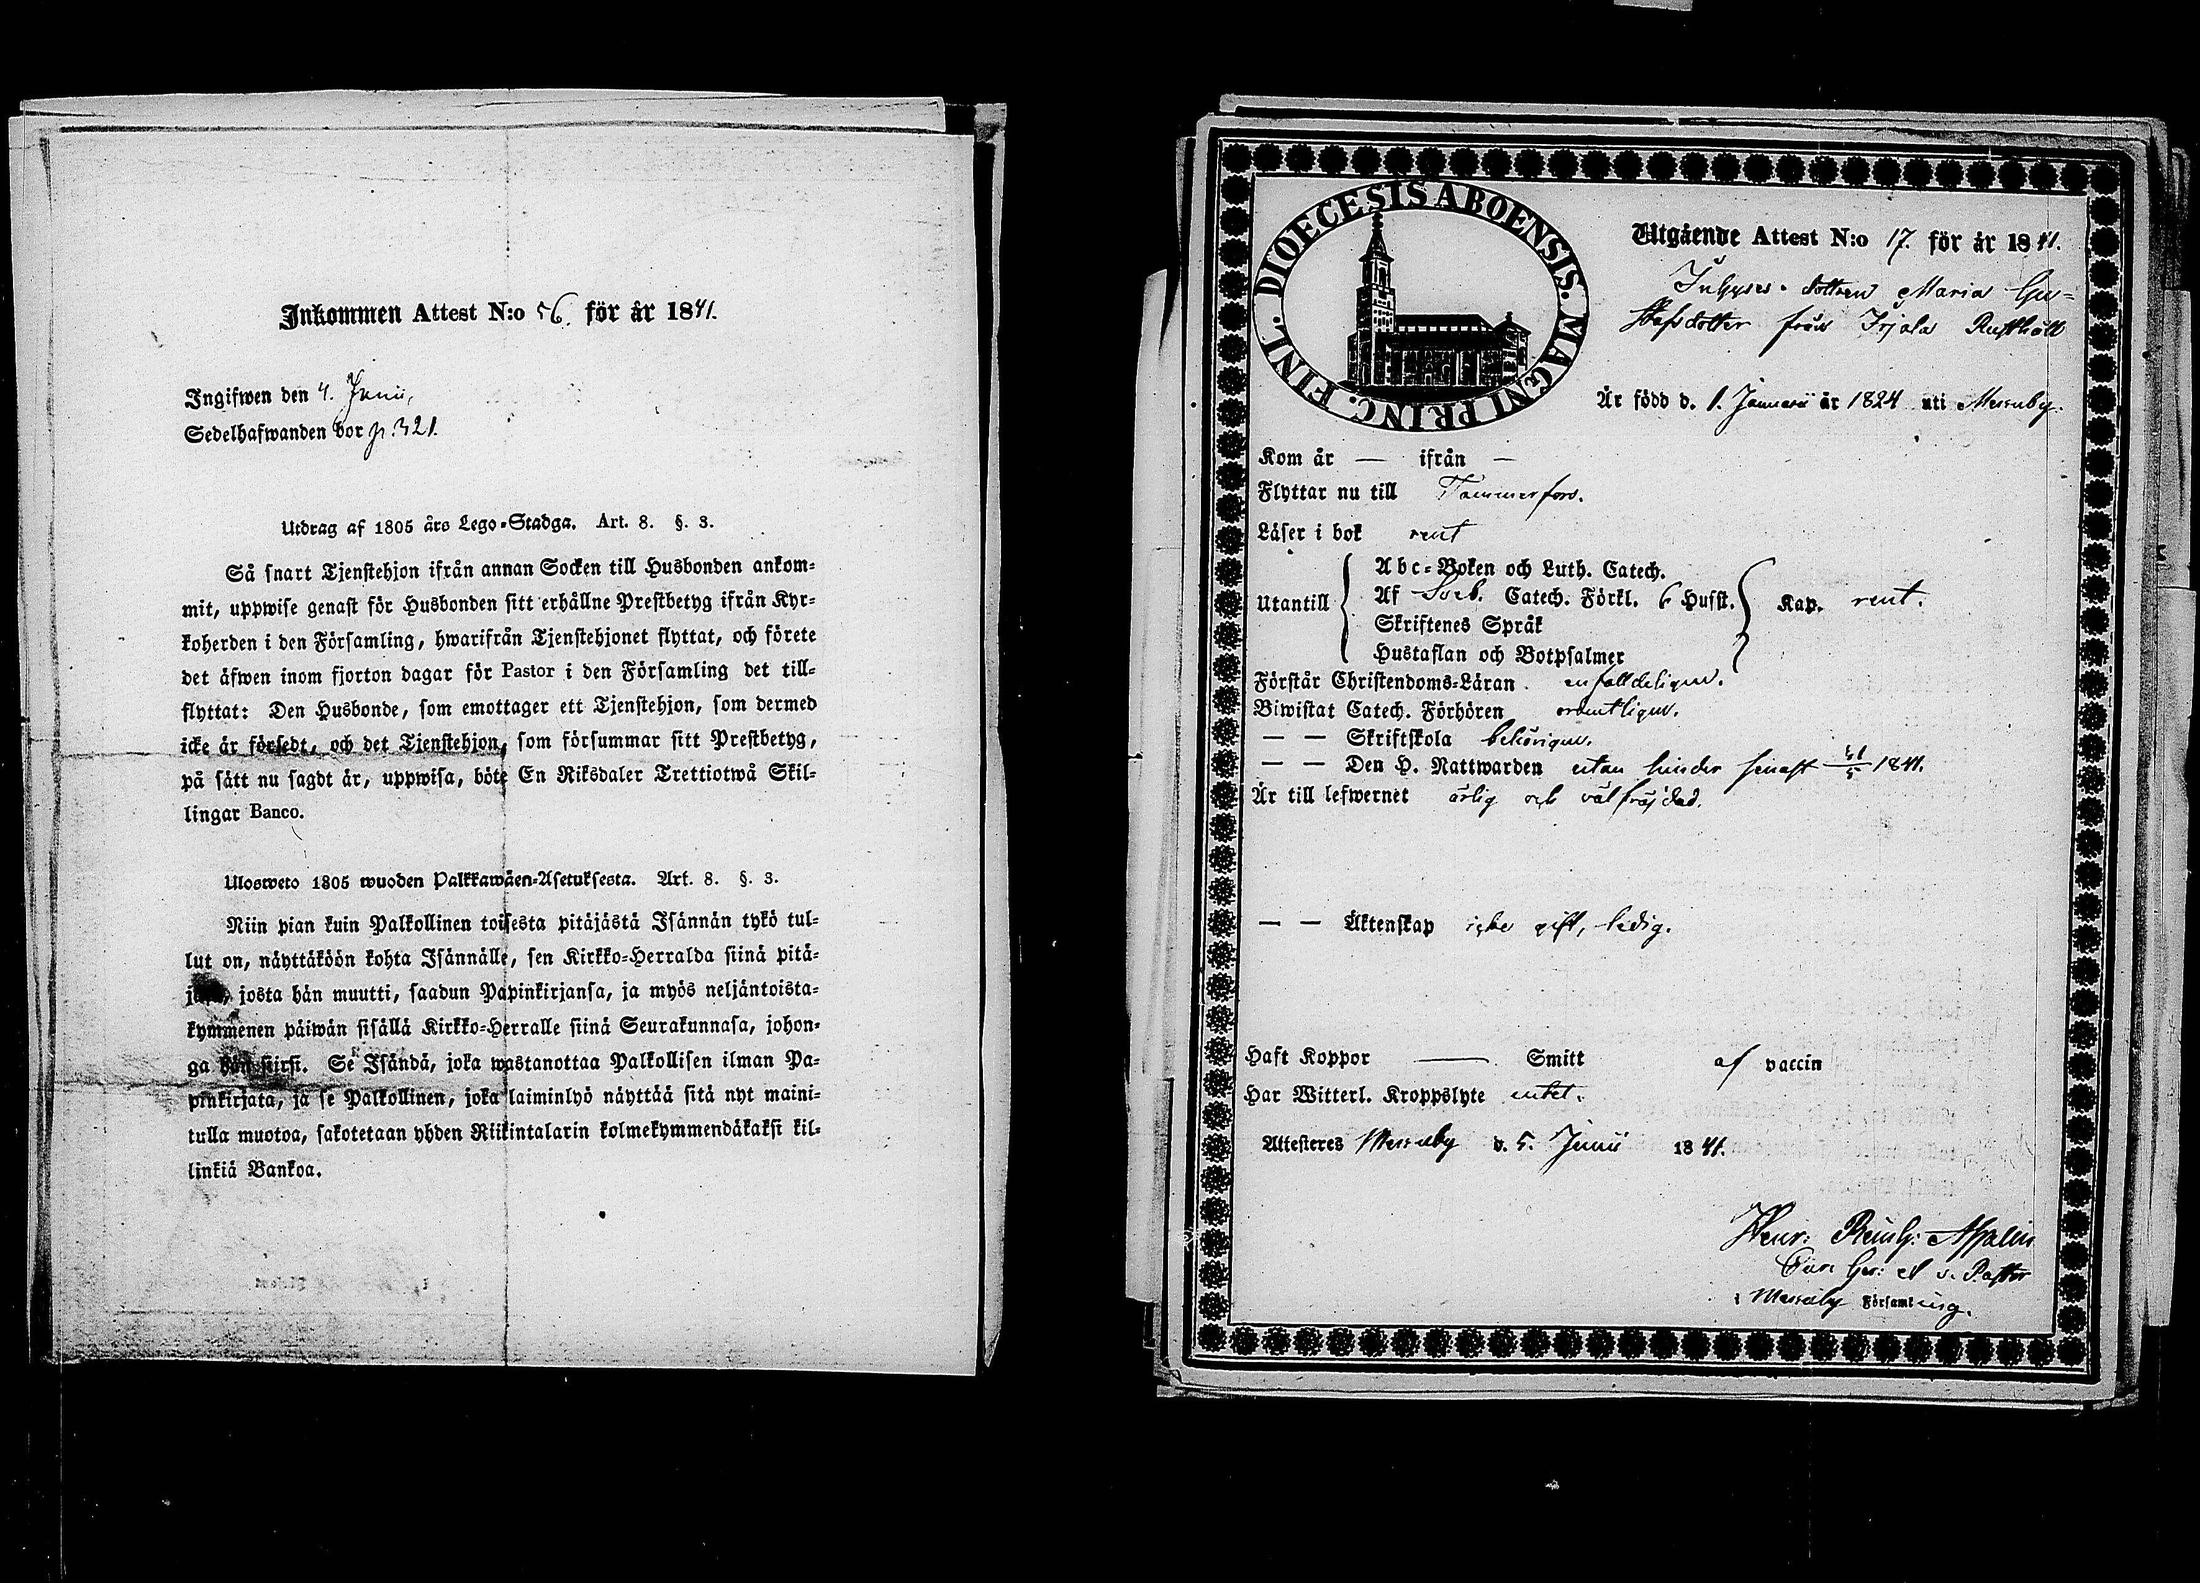 Inkommen Attest N:o 56. för år 1841.
Ingifwen den 4. Junii,
Sedelhafwanden bor p. 321.
Utdrag af 1805 års Lego-Stadga. Art. 8. §. 3.
Så snart Tjenstehjon ifrån annan Socken till Husbonden ankom-
mit, uppwise genast för Husbonden sitt erhållne Prestbetyg ifrån Kyr-
koherden i den Församling, hwarifrån Tjenstehjonet flyttat, och förete
det äfwen inom fjorton dagar för Pastor i den Församling det till-
flyttat: Den Husbonde, som emottager ett Tjenstehjon, som dermed
icke är försedt, och det Tjenstehjon, som försummar sitt Prestbetyg,
på sätt nu sagdt är, uppwisa, böte En Riksdaler Trettiotwå Skil-
lingar Banco.
Ulosweto 1805 wuoden Palkkawäen-Asetuksesta. Art. 8. §. 3.
Niin pian kuin Palkollinen toisesta pitäjästä Isännän tykö tul-
lut on, näyttäköön kohta Isännälle, sen Kirkko-Herralda siinä pitä-
josta hän muutti, saadun Papinkirjansa, ja myös neljäntoista-
kymmenen päiwän sisällä Kirkko-Herralle siinä Seurakunnasa, johon-
ga hän siirsi. Se Isändä, joka wastanottaa Palkollisen ilman Pa-
pinkirjata, ja se Palkollinen, joka laiminlyö näyttää sitä nyt maini-
tulla muotoa, sakotetaan yhden Riikintalarin kolmekymmendäkaksi kil-
linkiä Bankoa.
DIOECESIS ABOENSIS. MAGNI PRINC. FINL.
Utgående Attest N:o 17. för år 1841.
Inhyses-dottren Maria Gu-
stafsdotter från Irjala Rusthåll
Är född d. 1. Januarii år 1824 uti Messuby.
Kom år — ifrån —
Flyttar nu till Tammerfors.
Läser i bok rent
Utantill
Abc-Boken och Luth. Catech.
Af Sveb. Catech. Förkl. 6 Hufst. Kap. rent.
Skriftenes Språk
Hustaflan och Botpsalmer
Förstår Christendoms-Läran enfalldeligen.
Biwistat Catech. Förhören ordentligen.
— — Skriftskola behörigen.
— — Den H. Nattwarden utan hinder senast 1841.
Är till lefwernet ärlig och välfräjdad.
— — Äktenskap icke gift, ledig.
Haft Koppor — Smitt af vaccin
Har Witterl. Kroppslyte intet.
Attesteres Messuby d. 5. Junii 1841.
Henr: Reinh:
Pastor
i Messuby Församling.